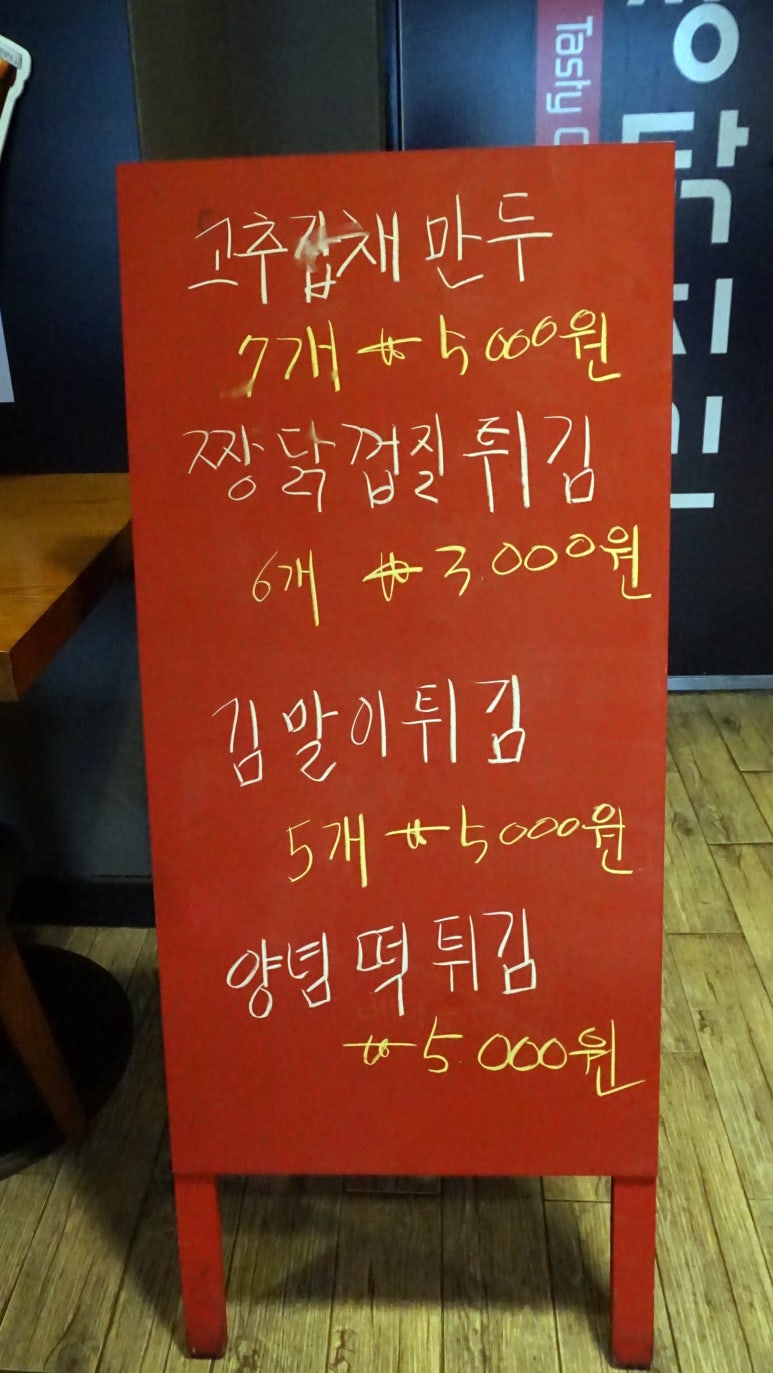 고추잡채만두
7개 ₩ 5000원
짱닭껍질튀김
6개 ₩ 3.000원
김말이튀김
5개 ₩ 5000원
양념떡튀김
₩ 5.000원
Tasty
닭치킨